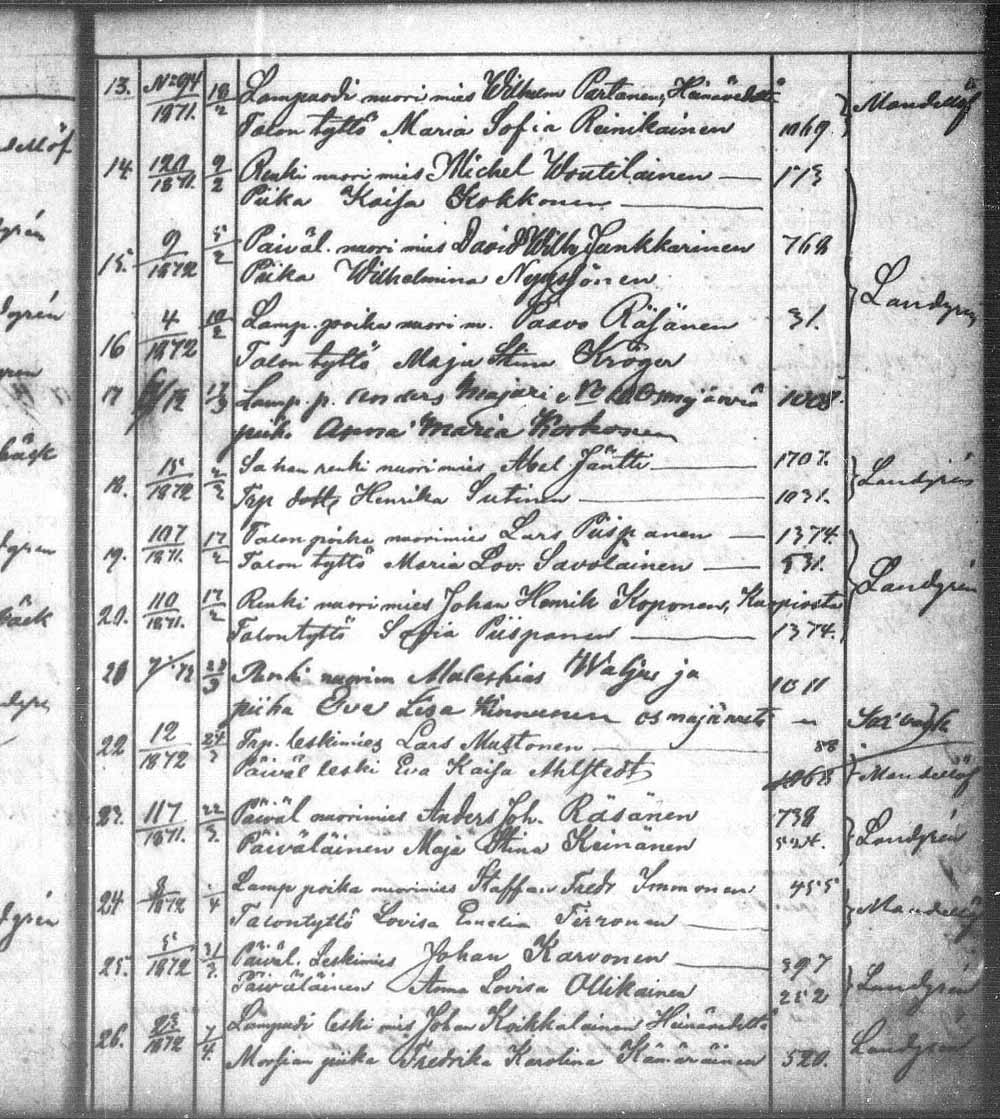 dellöf
grén
dgrén
gren
bäck
dgren
bäck
dgré
dgrén
13. No 94/1871. 18/2 Lampuodi nuori mies Wilhelm Partanen, Heinävedeltä
Talon tyttö Maria Sofia Reinikainen 1069. Mandellöf
14. 120/1871. 9/2 Renki nuori mies Michel Woutilainen — 513
Piika Kaisa Kokkonen —
15. 9/1872 5/2 Päiväl. nuori mies David Wilh. Jankkarinen 768
Piika Wilhelmina Nyyssönen Landgrén
16 4/1872 18/2 Lamp. poika nuori m. Paavo Räsänen 31.
Talon tyttö, Maja Stina Kröger
17 /72 17/3 Lamp. p. Anders Majari Osmajärviä 1008.
piik. Anna Maria Korhonen
18. 15/1872 2/3 Sahan renki nuori mies, Abel Jäntti — 1707.
Trp dott. Henrika Sutinen — 1031. Landgrén
19. 107/1871. 17/2 Talon poika nuorimies Lars Piispanen — 1374.
Talon tyttö Maria Lov. Savolainen — 531.
20. 110/1871. 17/2 Renki nuori mies Johan Henrik Koponen, Kuopiosta Landgrén
Talontyttö Sofia Piispanen — 1374.
/72 23/3 Renki nuorim Malachias Waljus ja 1011
piika Eva Lisa Kinnunen osmajärvelt
22 12/1872 24/3 Trp. leskimies Lars Mustonen — 88
Päiväl leski Eva Kaisa Ahlstedt 1068 Mandellöf
23. 117/1871. 22/3. Päiväl nuorimies Anders Joh. Räsänen 738
Päiväläinen Maja Stina Keinänen 524. Landgrén
24 8/1872 1/4 Lamp poika nuorimies Staffan Fredr Immonen 455
Talontyttö Lovisa Emelia Tirronen — Mandellöf
25. 5/1872 31/3. Päiväl. Leskimies Johan Karvonen — 397
Päiväläinen Anna Lovisa Ollikainen 252 Landgrén
26. 25/1872 7/4. Lampuodi leski mies Johan Koikkalainen Heinävedeltä
Morsian piika Fredrika Karolina Hämäräinen 520. Landgrén